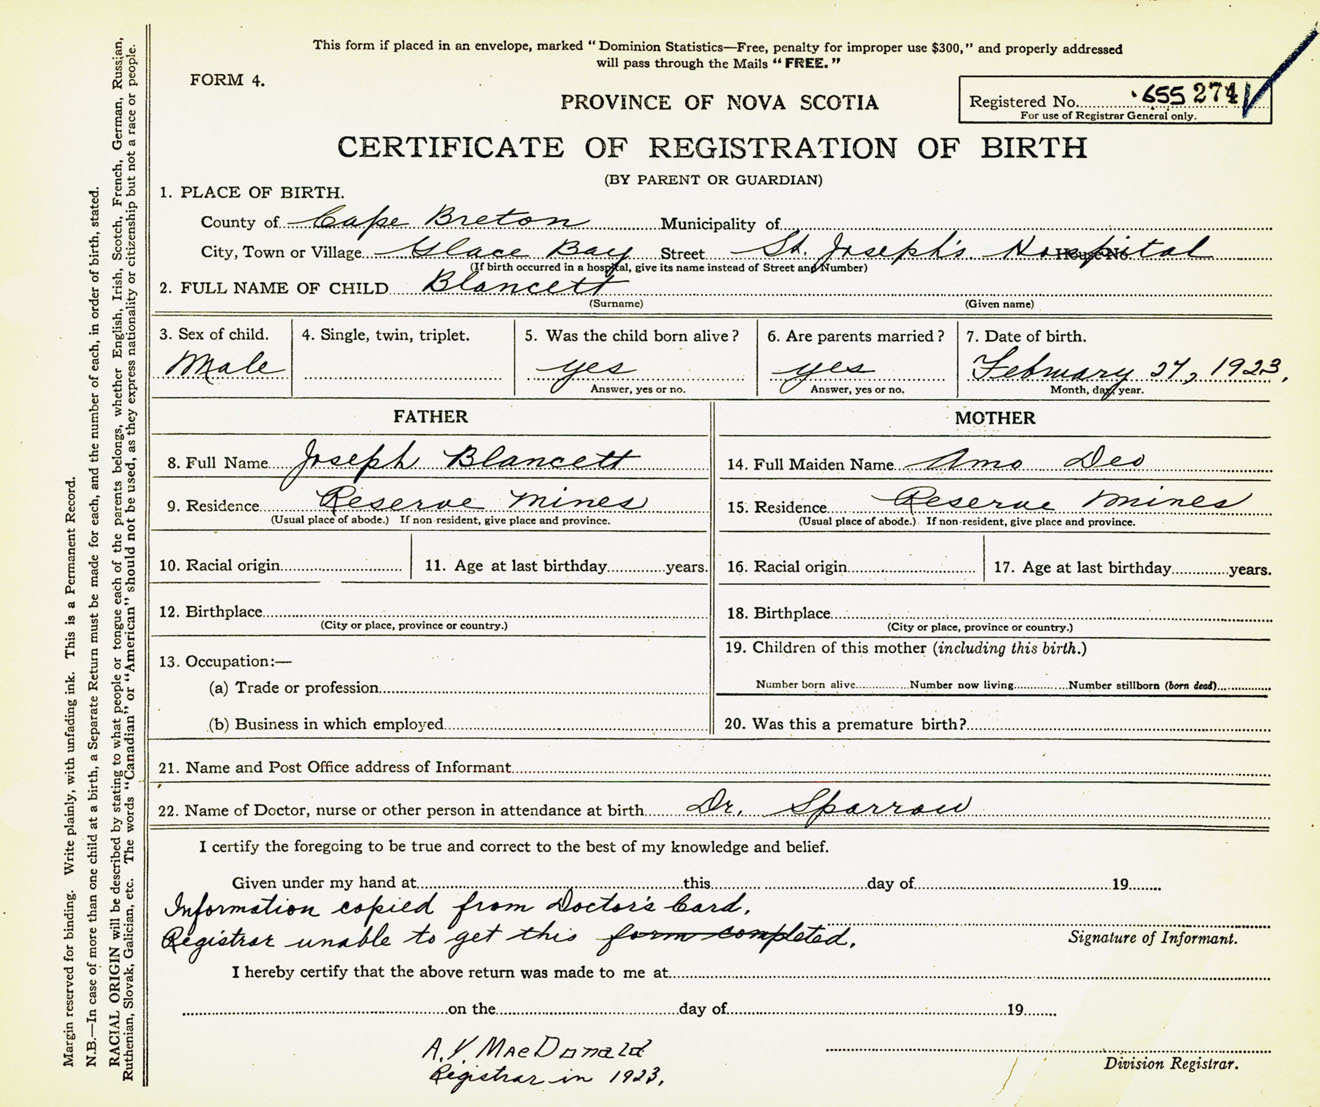 This form if placed in an envelope, marked "Dominion Statistics—Free, penalty for improper use $300," and properly addressed
will pass through the Mails "FREE."
FORM 4.
PROVINCE OF NOVA SCOTIA
Registered No. 655 274
For use of Registrar General only.
CERTIFICATE OF REGISTRATION OF BIRTH
(BY PARENT OR GUARDIAN)
1. PLACE OF BIRTH.
County of Cape Breton Municipality of
City, Town or Village Glace Bay Street St. Joseph's Hospital House No
(If birth occurred in a hospital, give its name instead of Street and Number)
2. FULL NAME OF CHILD Blancett
(Surname) (Given name)
3. Sex of child. 4. Single, twin, triplet. 5. Was the child born alive? 6. Are parents married? 7. Date of birth.
Male yes yes February 27, 1923.
Answer, yes or no. Answer, yes or no. Month, day, year.
FATHER MOTHER
8. Full Name Joseph Blancett 14. Full Maiden Name Amo Deo
9. Residence Reserve Mines 15. Residence Reserve Mines
(Usual place of abode.) If non-resident, give place and province. (Usual place of abode.) If non-resident, give place and province.
10. Racial origin 11. Age at last birthday years. 16. Racial origin 17. Age at last birthday years.
12. Birthplace 18. Birthplace
(City or place, province or country.) (City or place, province or country.)
19. Children of this mother (including this birth.)
13. Occupation:—
(a) Trade or profession Number born alive Number now living Number stillborn (born dead)
(b) Business in which employed 20. Was this a premature birth?
21. Name and Post Office address of Informant
22. Name of Doctor, nurse or other person in attendance at birth Dr. Sparrow
I certify the foregoing to be true and correct to the best of my knowledge and belief.
Given under my hand at this day of 19
Information copied from Doctor's Card.
Registrar unable to get this form completed.
Signature of Informant.
I hereby certify that the above return was made to me at
on the day of 19
A. V. MacDonald
Registrar in 1923.
Division Registrar.
Margin reserved for binding. Write plainly, with unfading ink. This is a Permanent Record.
N.B.—In case of more than one child at a birth, a Separate Return must be made for each, and the number of each, in order of birth, stated.
RACIAL ORIGIN will be described by stating to what people or tongue each of the parents belongs, whether English, Irish, Scotch, French, German, Russian,
Ruthenian, Slovak, Galician, etc. The words "Canadian" or "American" should not be used, as they express nationality or citizenship but not a race or people.